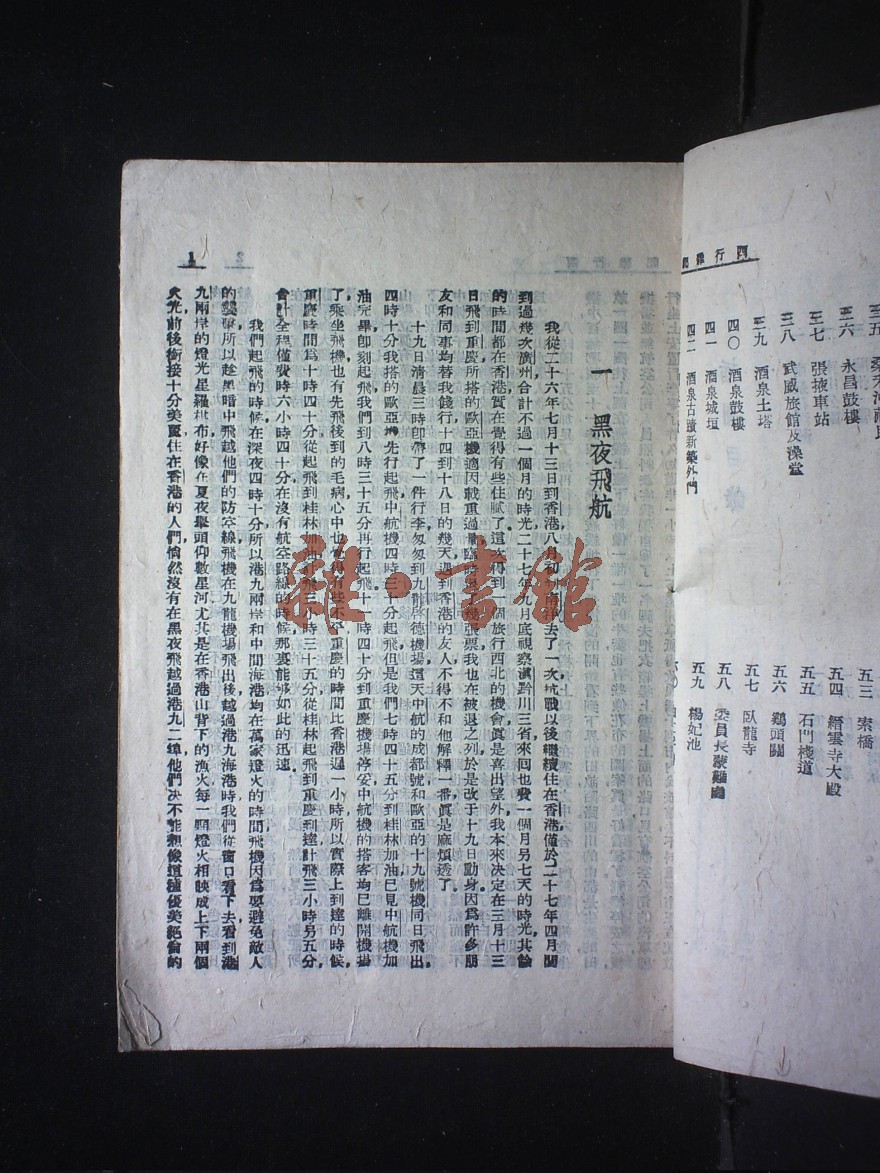 西行雜記
三六　永昌鼓樓
三七　張掖車站
三八　武威旅館及澡堂
三九　酒泉土塔
四〇　酒泉鼓樓
四一　酒泉城垣
四二　酒泉古蹟新築外門
五三　索橋
五四　縉雲寺大殿
五五　石門棧道
五六　鷄頭關
五七　臥龍寺
五八　委員長蒙難處
五九　楊妃池
1
一　黑夜飛航
我從二十六年七月十三日到香港，八月初到南洋去了一次，抗戰以後，繼續住在香港，僅於二十七年四月間
到過幾次廣州，合計不過一個月的時光。二十七年九月底視察滇黔川三省，來回也費一個月另七天的時光，其餘
的時間都在香港，實在覺得有些住膩了。這次得到一個旅行西北的機會，眞是喜出望外。我本來決定在三月十三
日飛到重慶，所搭的歐亞機，適因載重過量，臨時退幾張票，我也在被退之列。於是改于十九日動身。因爲許多朋
友和同事，均替我餞行，十四到十八日的幾天，遇到香港的友人，不得不和他解釋一番，眞是麻煩透了。
十九日清晨三時，即帶了一件行李，匆匆到九龍啓德機場，這天中航的成都號和歐亞的十九號機同日飛出，
四時十分，我搭的歐亞機先行起飛，中航機四時三十分起飛，但是我們七時四十五分到桂林加油，已見中航機加
油完畢，卽刻起飛，我們到八時三十五分再行起飛，十一時四十分到重慶機場停妥，中航機的搭客，均已離開機場
了，乘坐飛機，也有先飛後到的毛病，心中也覺得有些不平。重慶的時間，比香港遲一小時，所以實際上到達的時候，
重慶時間爲十時四十分，從起飛到桂林加油，計飛三小時三十五分，從桂林起飛到重慶到達，計飛三小時另五分，
合計全程僅費時六小時四十分，在沒有航空路線的時候，那裏能够如此的迅速。
我們起飛的時候，在深夜四時十分，所以港九兩岸和中間海港，均在萬家燈火的時間，飛機因爲要避免敵人
的襲擊，所以趁黑暗中飛越他們的防空線，飛機在九龍機場飛出後，越過港九海港時，我們從窗口看下去，看到港
九兩岸的燈光，星羅棋布，好像在夏夜舉頭仰數星河，尤其是在香港山背下的漁火，每一顆燈火，相映成上下兩個
火光，前後銜接，十分美麗，住在香港的人們，倘然沒有在黑夜飛越過港九二埠，他們决不能想像這種優美絕倫的
雜·書館